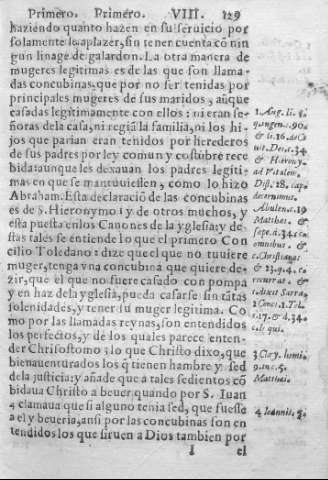 Primero. Primero. VIII. 129
haziendo quanto hazen en su seruicio por
solamente le aplazer, sin tener cuenta cō nin
gun linage de galardon. La otra manera de
mugeres legitimas es de las que son llama-
das concubinas, que por no ser tenidas por
principales mugeres de sus maridos, aūque
casadas legitimamente con ellos: ni eran se-
ñoras de la casa, ni regiā la familia, ni los hi-
jos que parian eran tenidos por herederos
de sus padres por ley comun y costūbre rece
bida: aunque les dexauan los padres legiti-
mas en que se mantuuiessen, como lo hizo
Abraham. Esta declaraciō de las concubinas
es de S. Hieronymo 1 y de otros muchos, y
esta puesta enlos Canones de la yglesia: y de-
stas tales se entiende lo que el primero Con
cilio Toledano 2 dize que el que no tuuiere
muger, tenga vna concubina que quiere de-
zir, que el que no fuere casado con pompa
y en haz dela yglesia, pueda casarse sin tātas
solenidades, y tener su muger legitima. Co
mo por las llamadas reynas, son entendidos
los perfectos, y de los quales parece enten-
der Chrisostomo 3 lo que Christo dixo, que
bienauenturados los q̄ tienen hambre y sed
dela justicia: y añade que a tales sedientos cō
bidaua Christo a beuer quando por S. Iuan
4 clamaua que si alguno tenia sed, que fuesse
a el y beueria, ansi por las concubinas son en
tendidos los que siruen a Dios tambien por
I el
1. Aug. li.
q. 90.
& li. 16. de Ci
uit. Dei. c. 34
& Hierony.
ad Vitalem.
Dist. 28. cap.
decernimus.
Abulen. c. 19
Matthei. &
omnibus &
Christiana:
& 13. q. 4. c.
recurrat. &
c. dixit Sarra.
2 Conci. 1. Tol.
c. 17. & d. 34.
c. Is qui.
3 Chry. homi.
9. inc. 5.
Matthæi.
4 Ioannis. 7.